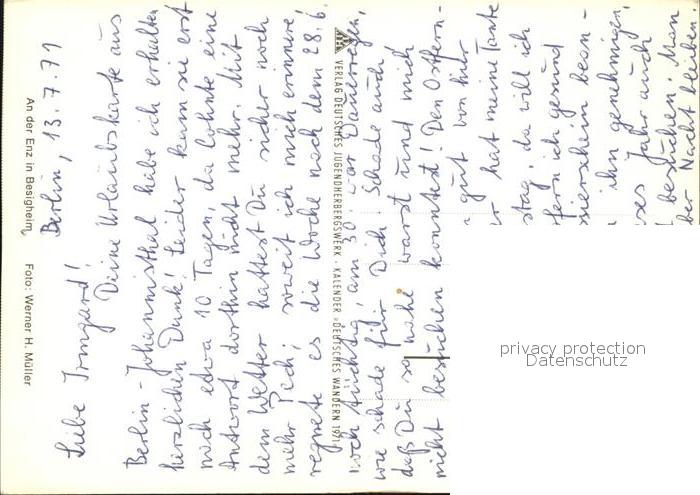 Berlin, 13.7.71
Liebe Irmgard!
Deine Urlaubskarte aus
Berlin-Johannisthal habe ich erhalten
herzlichen Dank! Leider kam sie erst
nach etwa 10 Tagen, da lohnte eine
Antwort dorthin nicht mehr. Mit
dem Wetter hattest Du sicher noch
mehr Pech; soweit ich mich erinnere
regnete es die Woche nach dem 28.6.
noch tüchtig, am 30. war Dauerregen,
wie schade für Dich! Schade auch,
daß Du so nahe warst und mich
nicht besuchen konntest! Den Ostern-
gut von hier
hat meine Tante
stag, da will ich
fern ich gesund
been-
ihn genehmigen,
ses Jahr auch
besuchen. Man
der Nacht bleiben.
An der Enz in Besigheim
Foto: Werner H. Müller
VERLAG DEUTSCHES JUGENDHERBERGSWERK · KALENDER »DEUTSCHES WANDERN 1971
privacy protection
Datenschutz